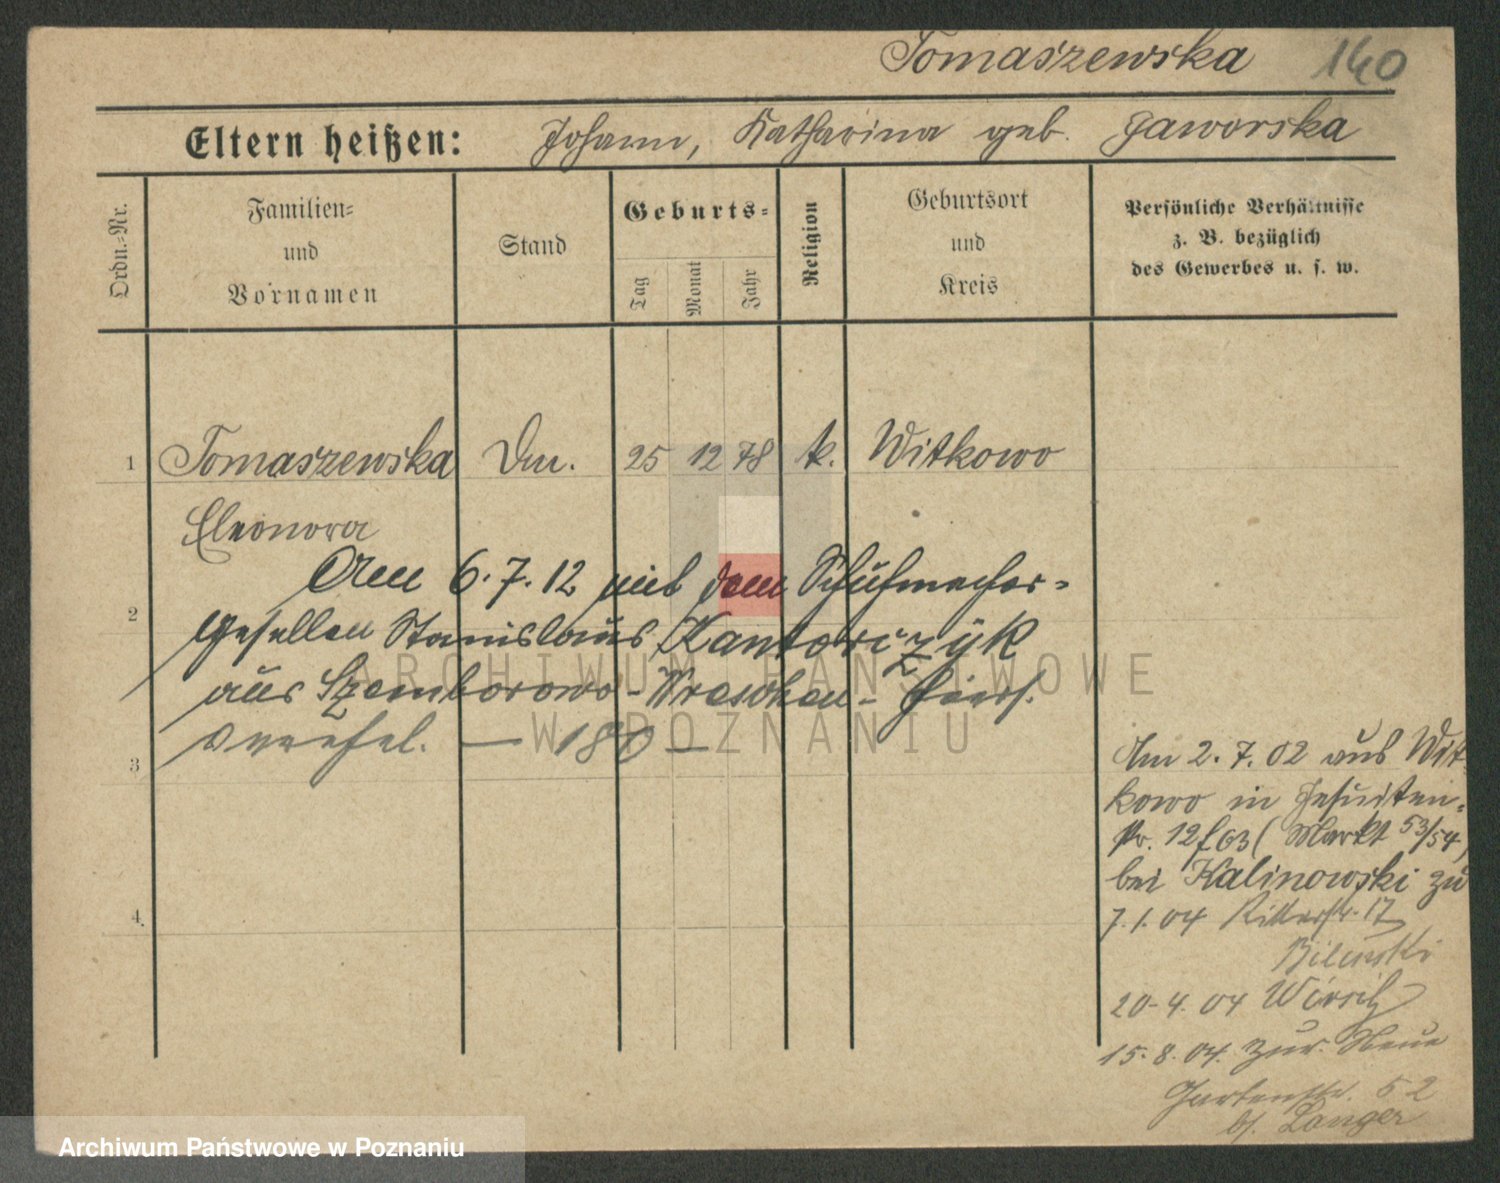 Tomaszewska 140
Eltern heißen: Johann, Katharina geb. Jaworska
Ordn.-Nr.
Familien-
und
Vornamen
Stand
Geburts-
Tag
Monat
Jahr
Religion
Geburtsort
und
Kreis
Persönliche Verhältnisse
z. B. bezüglich
des Gewerbes u. s. w.
1 Tomaszewska Dm. 25 12 78 k. Witkowo
Eleonora
Am 6.7.12 mit dem Schuhmacher-
2
gesellen Stanislaus Kantorczyk
aus Szemborowo - Wreschen -
verehel. — 180 —
3
4.
Am 2.7.02 aus Wit-
kowo in Jesuiten-
str. 12 (Markt 53/54)
bei Kalinowski zu
7.1.04 Ritterstr. 17
Bilinski
20-4.04 Wirsitz
15.8.04. zur. Neue
Gartenstr. 52
b/. Langer
ARCHIWUM PAŃSTWOWE
W POZNANIU
Archiwum Państwowe w Poznaniu